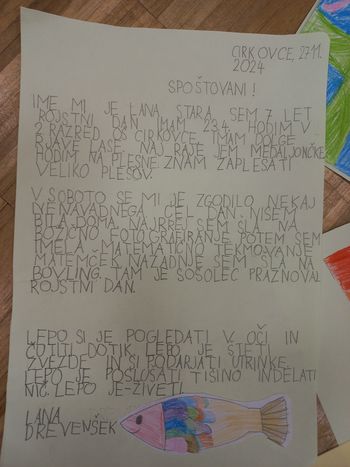 CIRKOVCE, 27.11.
2024
SPOŠTOVANI!
IME MI JE LANA STARA SEM 7 LET
ROJSTNI DAN IMAM 23.4. HODIM V
2. RAZRED OŠ CIRKOVCE. IMAM DOLGE
RJAVE LASE. NAJ RAJE JEM MEDALJONČKE
HODIM NA PLESNE ZNAM ZAPLESATI
VELIKO PLESOV.
V SOBOTO SE MI JE ZGODILO NEKAJ
NENAVADNEGA. CEL DAN NISEM
BILA DOMA. NAJPREJ SEM ŠLA NA
BOŽIČNO FOTOGRAFIRANJE. POTEM SEM
IMELA MATEMATIČNO TEKMOVANJE
MATEMČEK. NAZADNJE SEM ŠLA NA
BOVLING. TAM JE SOŠOLEC PRAZNOVAL
ROJSTNI DAN.
LEPO SI JE POGLEDATI V OČI IN
ČUTITI DOTIK. LEPO JE ŠTETI
ZVEZDE IN SI PODARJATI UTRINKE.
LEPO JE POSLUŠATI TIŠINO IN DELATI
NIČ. LEPO JE-ŽIVETI.
LANA
DREVENŠEK